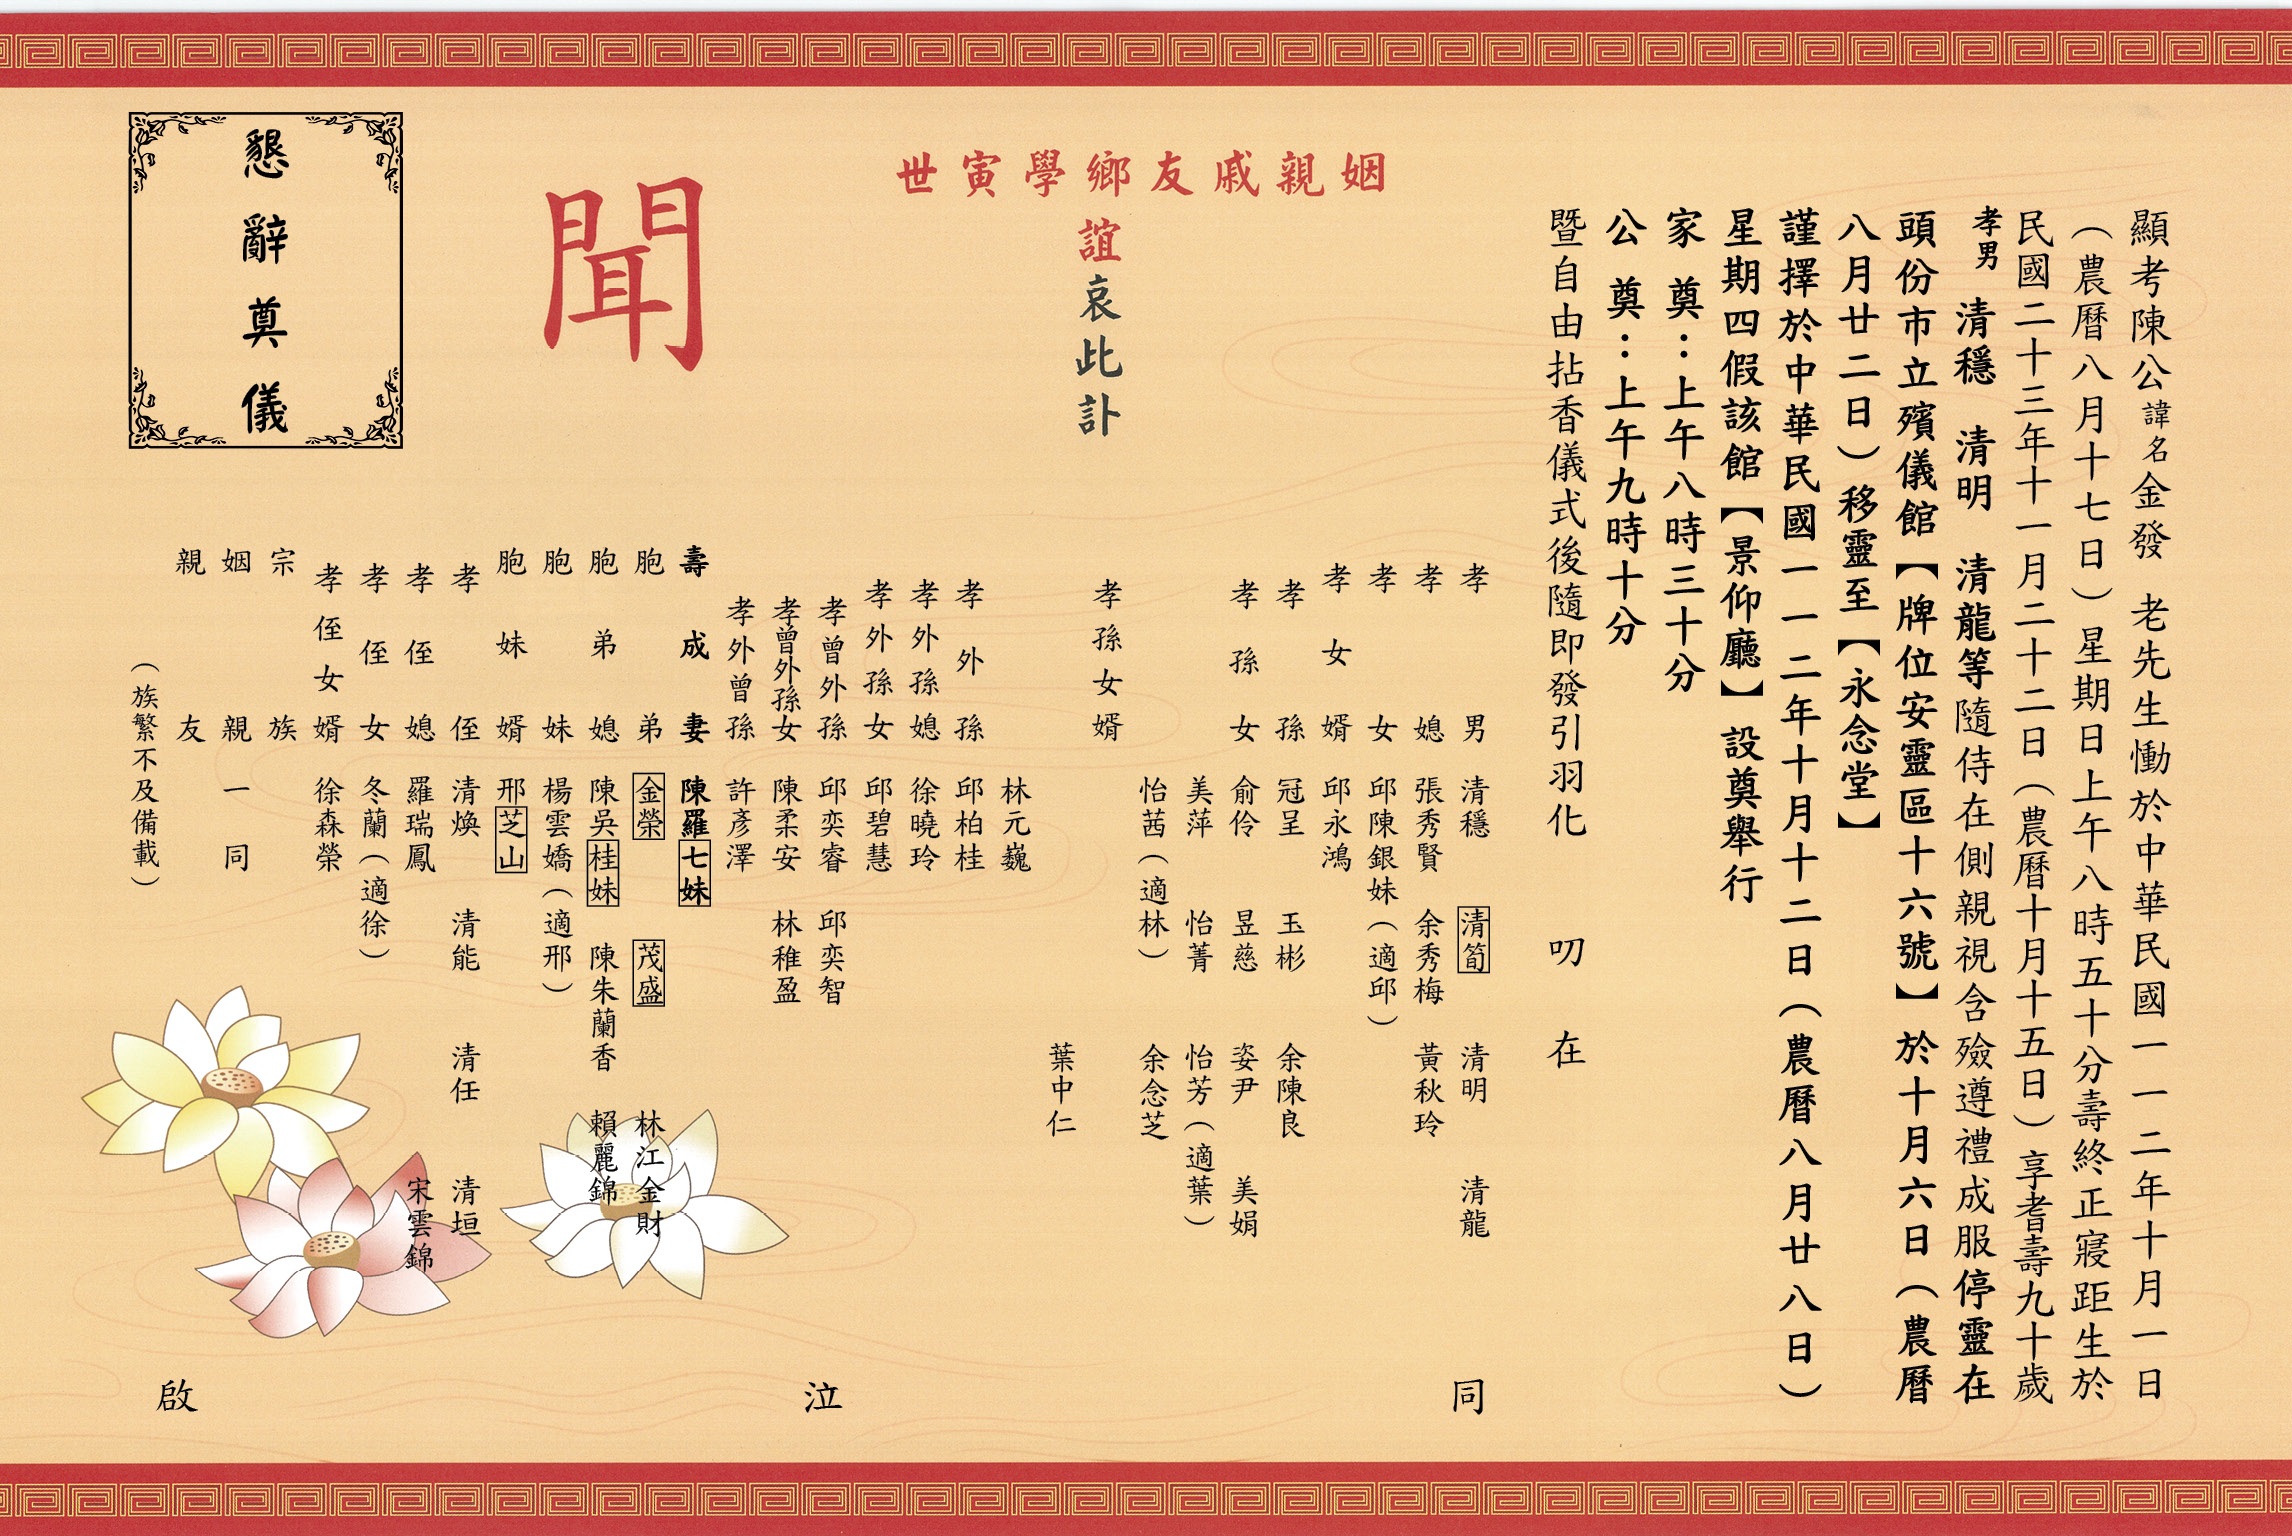 顯考陳公諱名金發　老先生慟於中華民國一一二年十月一日
（農曆八月十七日）星期日上午八時五十分壽終正寢距生於
民國二十三年十一月二十二日（農曆十月十五日）享耆壽九十歲
孝男　清穩　清明　清龍等隨侍在側親視含殮遵禮成服停靈在
頭份市立殯儀館【牌位安靈區十六號】於十月六日（農曆
八月廿二日）移靈至【永念堂】
謹擇於中華民國一一二年十月十二日（農曆八月廿八日）
星期四假該館【景仰廳】設奠舉行
家　奠：上午八時三十分
公　奠：上午九時十分
暨自由拈香儀式後隨即發引羽化　　叨　在
姻親戚友鄉學寅世
誼哀此訃
聞
懇辭奠儀
孝男　清穩　清筍　清明　清龍
孝媳　張秀賢　余秀梅　黃秋玲
孝女　邱陳銀妹（適邱）
孝女婿　邱永鴻
孝孫　冠呈　玉彬　余陳良
孝孫女　俞伶　昱慈　姿尹　美娟
美萍　怡菁　怡芳（適葉）
怡茜（適林）　余念芝
孝孫女婿
葉中仁
林元巍
孝外孫　邱柏桂
孝外孫媳　徐曉玲
孝外孫女　邱碧慧
孝曾外孫　邱奕睿　邱奕智
孝曾外孫女　陳柔安　林稚盈
孝外曾孫　許彥澤
壽成妻　陳羅七妹
胞弟　金榮　茂盛　林江金財
胞弟媳　陳吳桂妹　陳朱蘭香　賴麗錦
胞妹　楊雲嬌（適邢）
胞妹婿　邢芝山
孝侄　清煥　清能　清任　清垣
孝侄媳　羅瑞鳳　宋雲錦
孝侄女　冬蘭（適徐）
孝侄女婿　徐森榮
宗族
姻親一同
親友
（族繁不及備載）
同　泣　啟